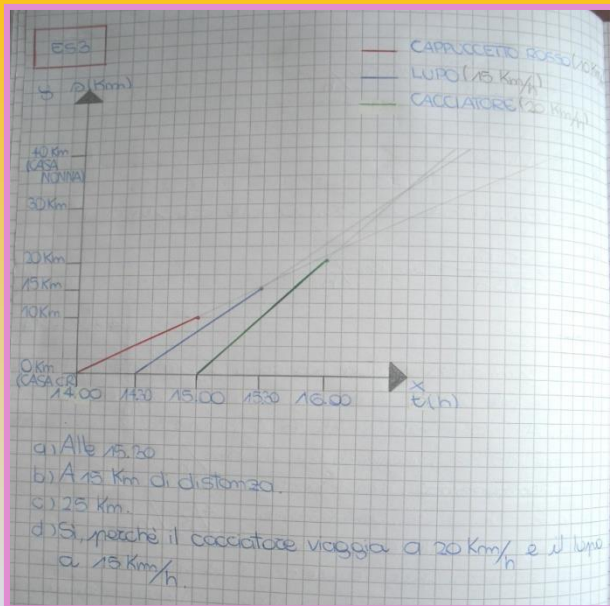 ES3
CAPPUCCETTO ROSSO (10 Km/h)
LUPO (15 Km/h)
CACCIATORE (20 Km/h)
y s(Km)
40 Km
(CASA
NONNA)
30 Km
20 Km
15 Km
10 Km
0 Km
(CASA CR)
14.00 14.30 15.00 15.30 16.00
x
t(h)
a) Alle 15.30
b) A 15 Km di distanza.
c) 25 Km.
d) Sì, perché il cacciatore viaggia a 20 Km/h e il lupo
a 15 Km/h.